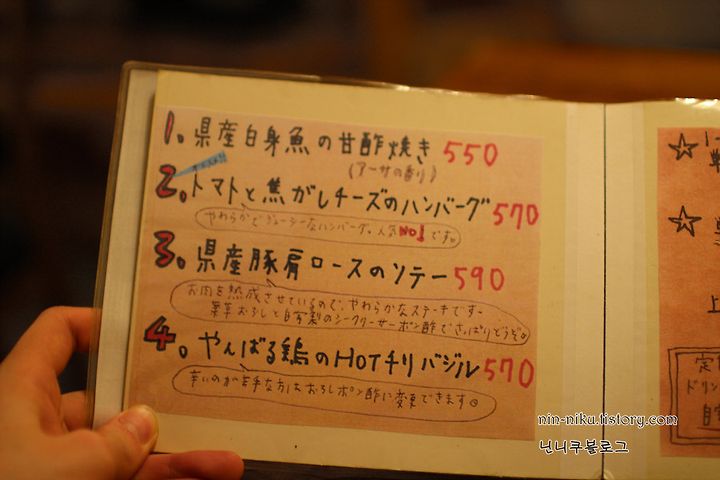 1. 県産白身魚の甘酢焼き 550
(アーサの香り)
オススメ!!
2. トマトと焦がしチーズのハンバーグ 570
やわらかでジューシーなハンバーグ。人気NO1です。
3. 県産豚肩ロースのソテー 590
お肉を熟成させているので、やわらかなステーキです。
薬草おろしと自家製のシークワーサーポン酢でさっぱりどうぞ。
4. やんばる鶏のHOTチリバジル 570
辛いのが苦手な方はおろしポン酢に変更できます
☆
☆
上
定
ドリン
自
nin-niku.tistory.com
닌니쿠블로그